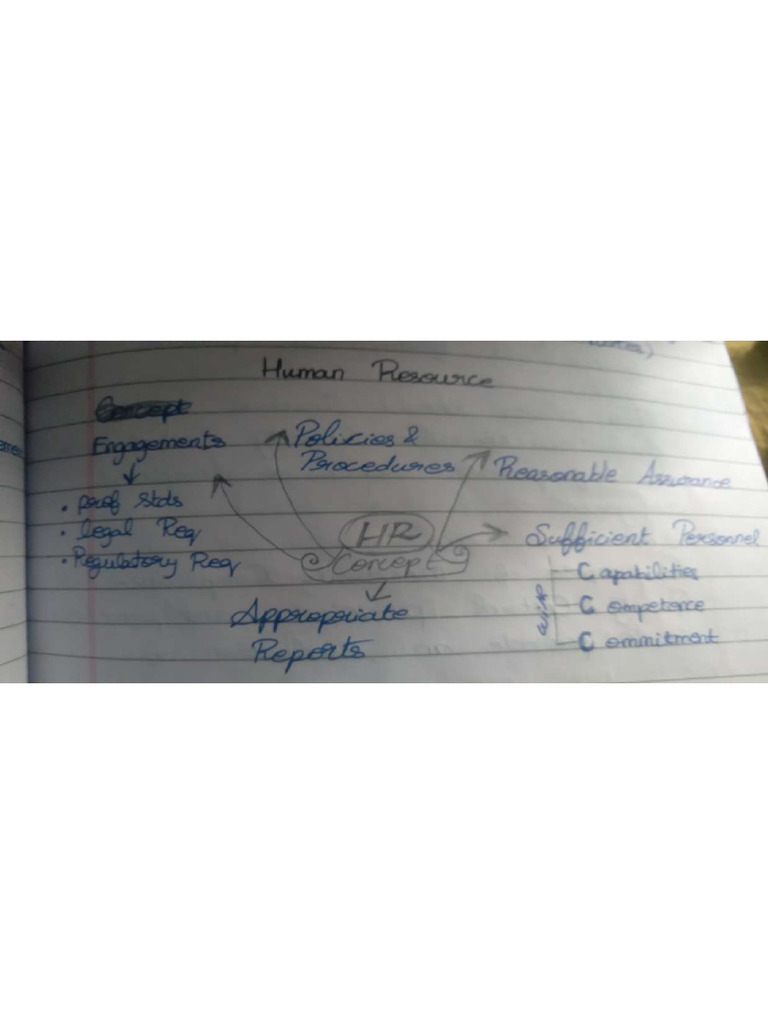 Human Resource
Engagements
• prof Stds
• legal Req
• Regulatory Req
Policies &
Procedures
Reasonable Assurance
HR
Concept
Sufficient Personnel
with
Capabilities
Competence
Commitment
Appropriate
Reports